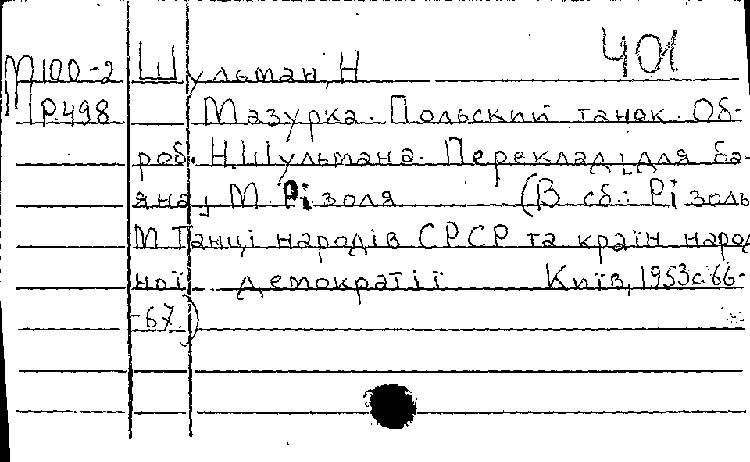 401
М100-2 Шульман, Н
Р498 Мазурка. Польский танок. Об-
роб. Н. Шульмана. Переклад, для ба-
яна, М Різоля (В сб.: Різоль
М Танці народів СРСР та країн народ
ної демократії Київ, 1953 с 66-
-67)